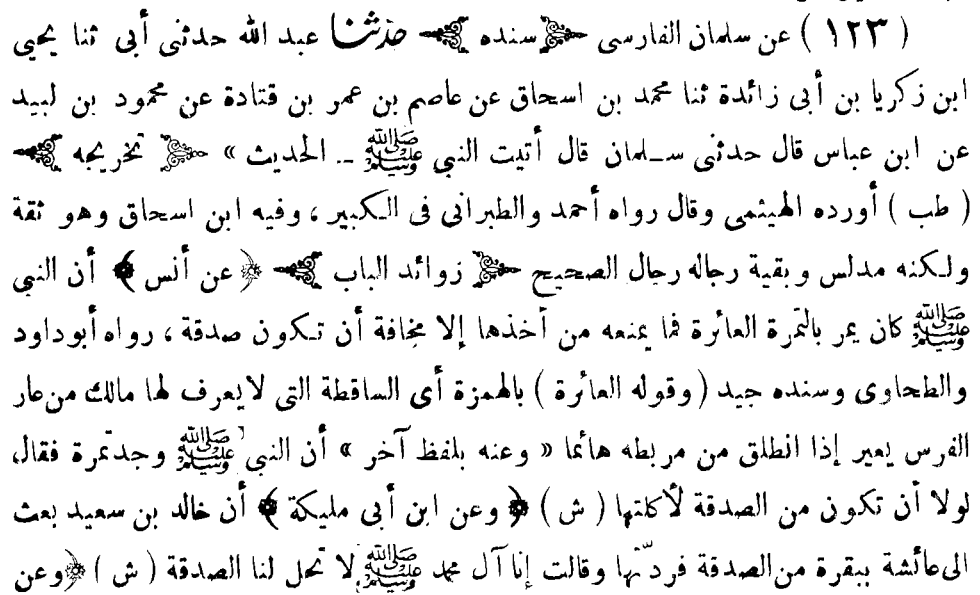 ( ١٢٣ ) عن سلمان الفارسى ﴿سنده﴾ حدثنا عبد الله حدثنى أبى ثنا يحيى
ابن زكريا بن أبى زائدة ثنا محمد بن اسحاق عن عاصم بن عمر بن قتادة عن محمود بن لبيد
عن ابن عباس قال حدثنى سلمان قال أتيت النبي ﷺ ــ الحديث » ﴿ تخريجه ﴾
( طب ) أورده الهيثمى وقال رواه أحمد والطبرانى فى الكبير ، وفيه ابن اسحاق وهو ثقة
ولكنه مدلس وبقية رجاله رجال الصحيح ﴿ زوائد الباب ﴾ ﴿ عن أنس ﴾ أن النبي
ﷺ كان يمر بالتمرة العائرة فما يمنعه من أخذها إلا مخافة أن تكون صدقة ، رواه أبوداود
والطحاوى وسنده جيد ( وقوله العائرة ) بالهمزة أى الساقطة التى لايعرف لها مالك من عار
الفرس يعير إذا انطلق من مربطه هائما « وعنه بلفظ آخر » أن النبي ﷺ وجدتمرة فقال،
لولا أن تكون من الصدقة لأكلتها ( ش ) ﴿ وعن ابن أبى مليكة ﴾ أن خالد بن سعيد بعث
الى عائشة ببقرة من الصدقة فردّتها وقالت إنا آل محمد ﷺ لا تحل لنا الصدقة ( ش ) ﴿ وعن